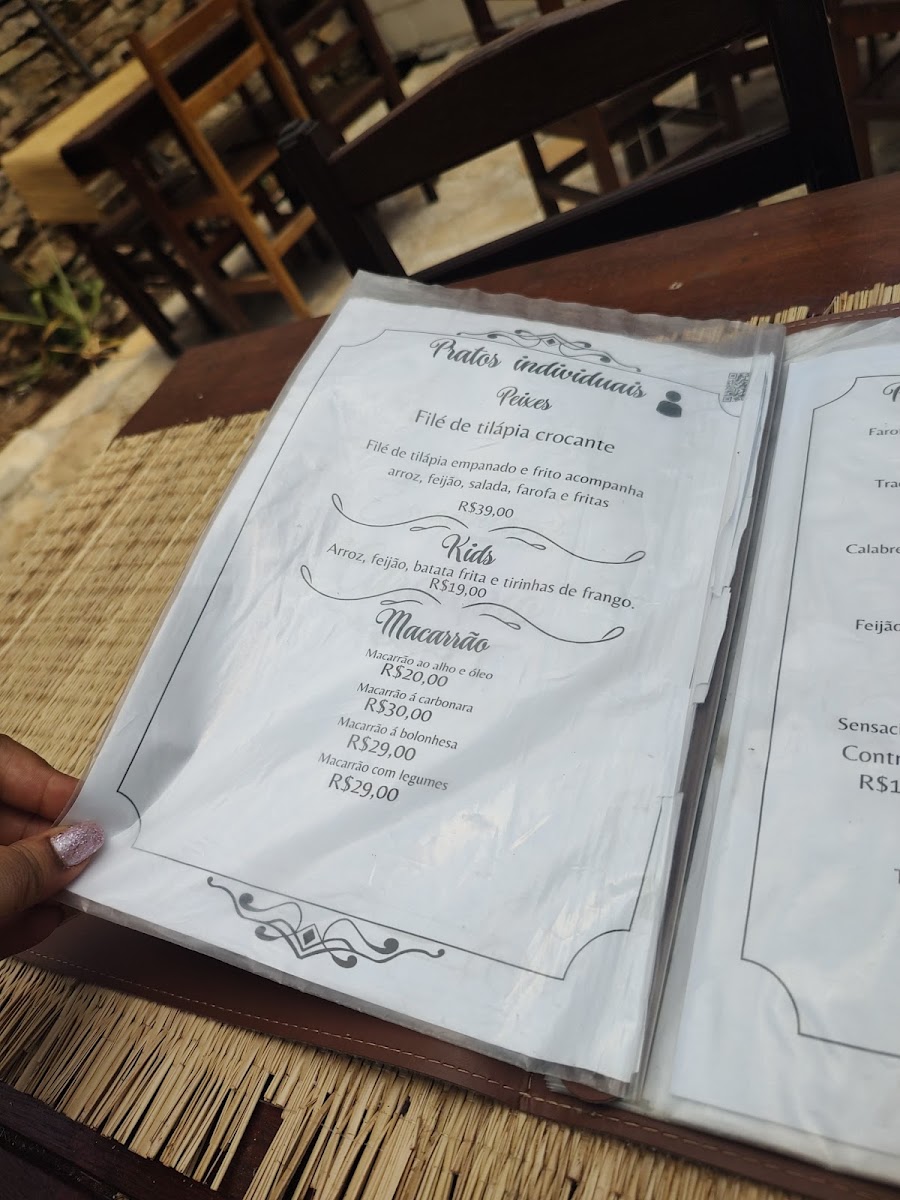 Pratos individuais
Peixes
Filé de tilápia crocante
Filé de tilápia empanado e frito acompanha
arroz, feijão, salada, farofa e fritas
R$39,00
Kids
Arroz, feijão, batata frita e tirinhas de frango.
R$19,00
Macarrão
Macarrão ao alho e óleo
R$20,00
Macarrão á carbonara
R$30,00
Macarrão á bolonhesa
R$29,00
Macarrão com legumes
R$29,00
Faro
Tra
Calabre
Feijão
Sensaci
Contr
R$1